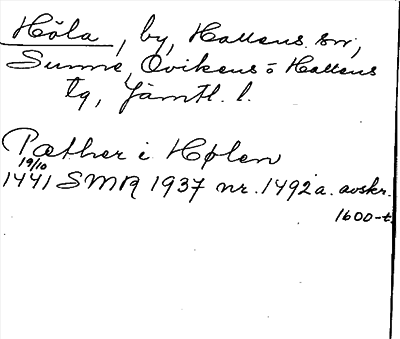 Höla, by, Hallens sn,
Sunne, Ovikens o Hallens
tg, Jämtl. l.
Pæther i Hølen
19/10
1441 SMR 1937 nr. 1492 a. avskr.
1600-t.